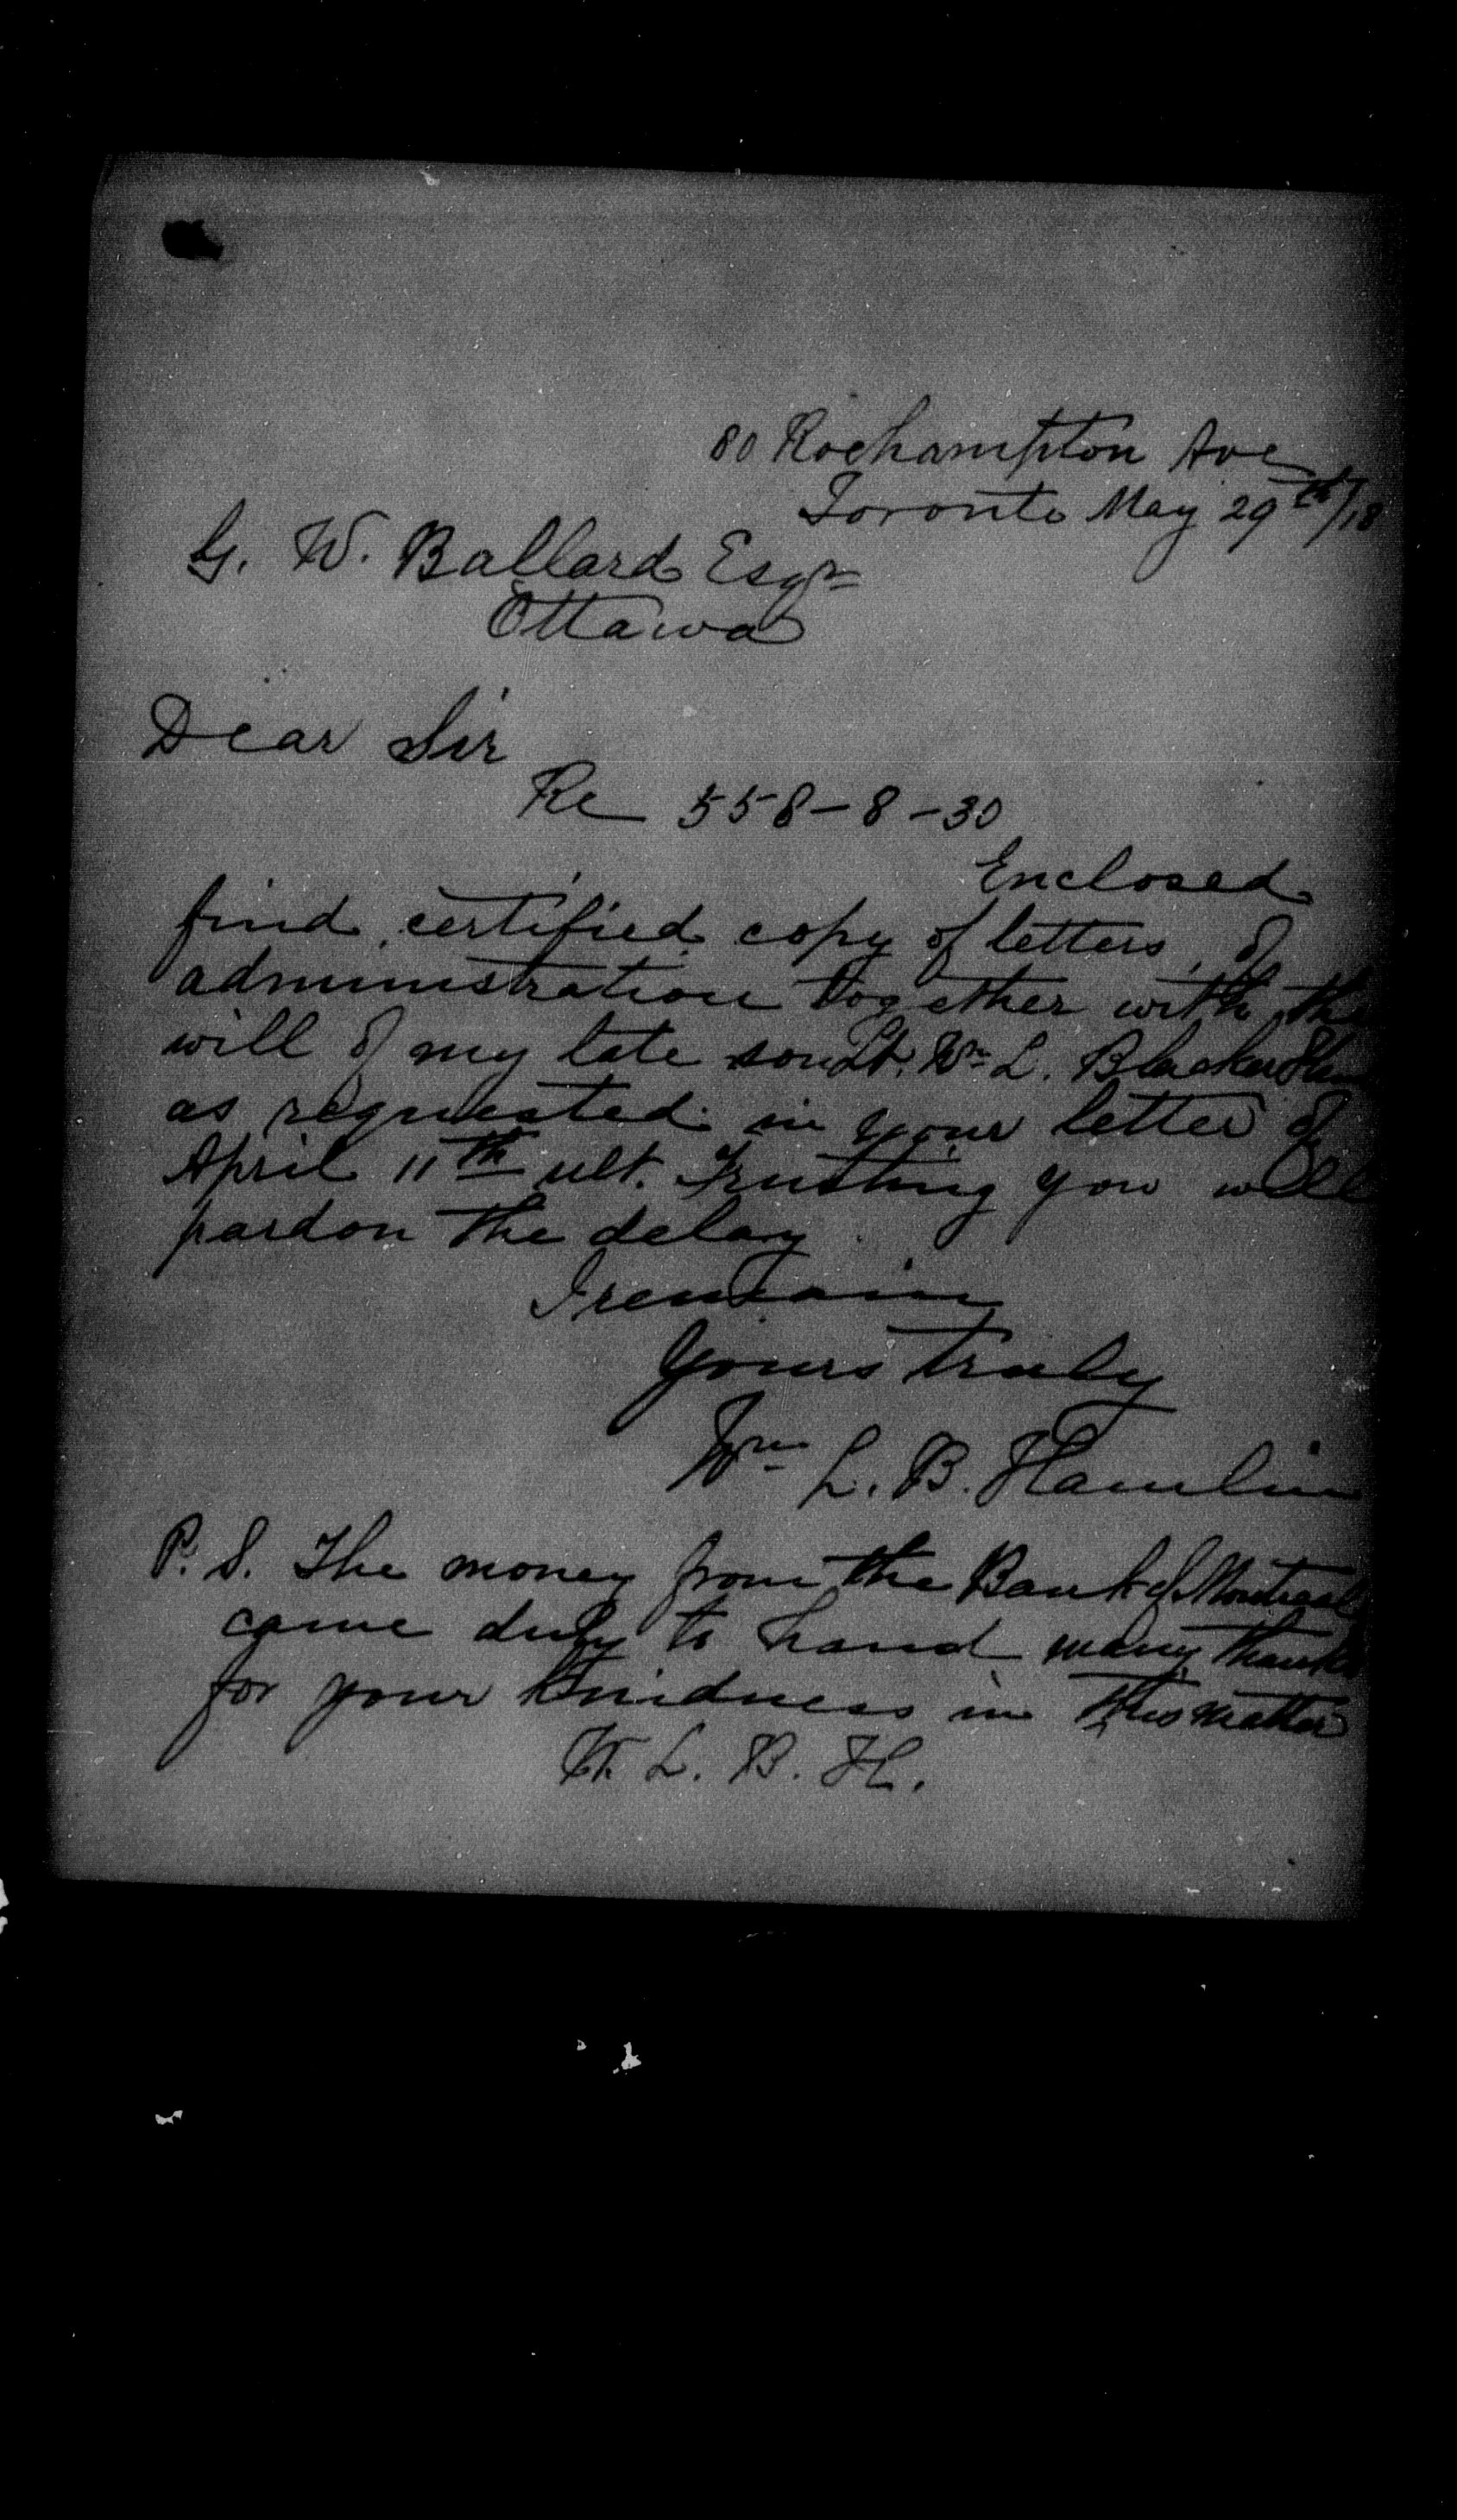 80 Roehampton Ave
Toronto May 29th/18
G. W. Ballard Esqr
Ottawa
Dear Sir
Re 558-8-30
Enclosed
find certified copy of letters of
administration together with the
will of my late son Lt. Wm L. Blacker
as requested in your letter of
April 11th ult. Trusting you will
pardon the delay.
I remain
Yours truly
Wm L. B. Hamlin
P. S. The money from the Bank of Montreal
came duly to hand many thanks
for your kindness in this matter
W. L. B. H.